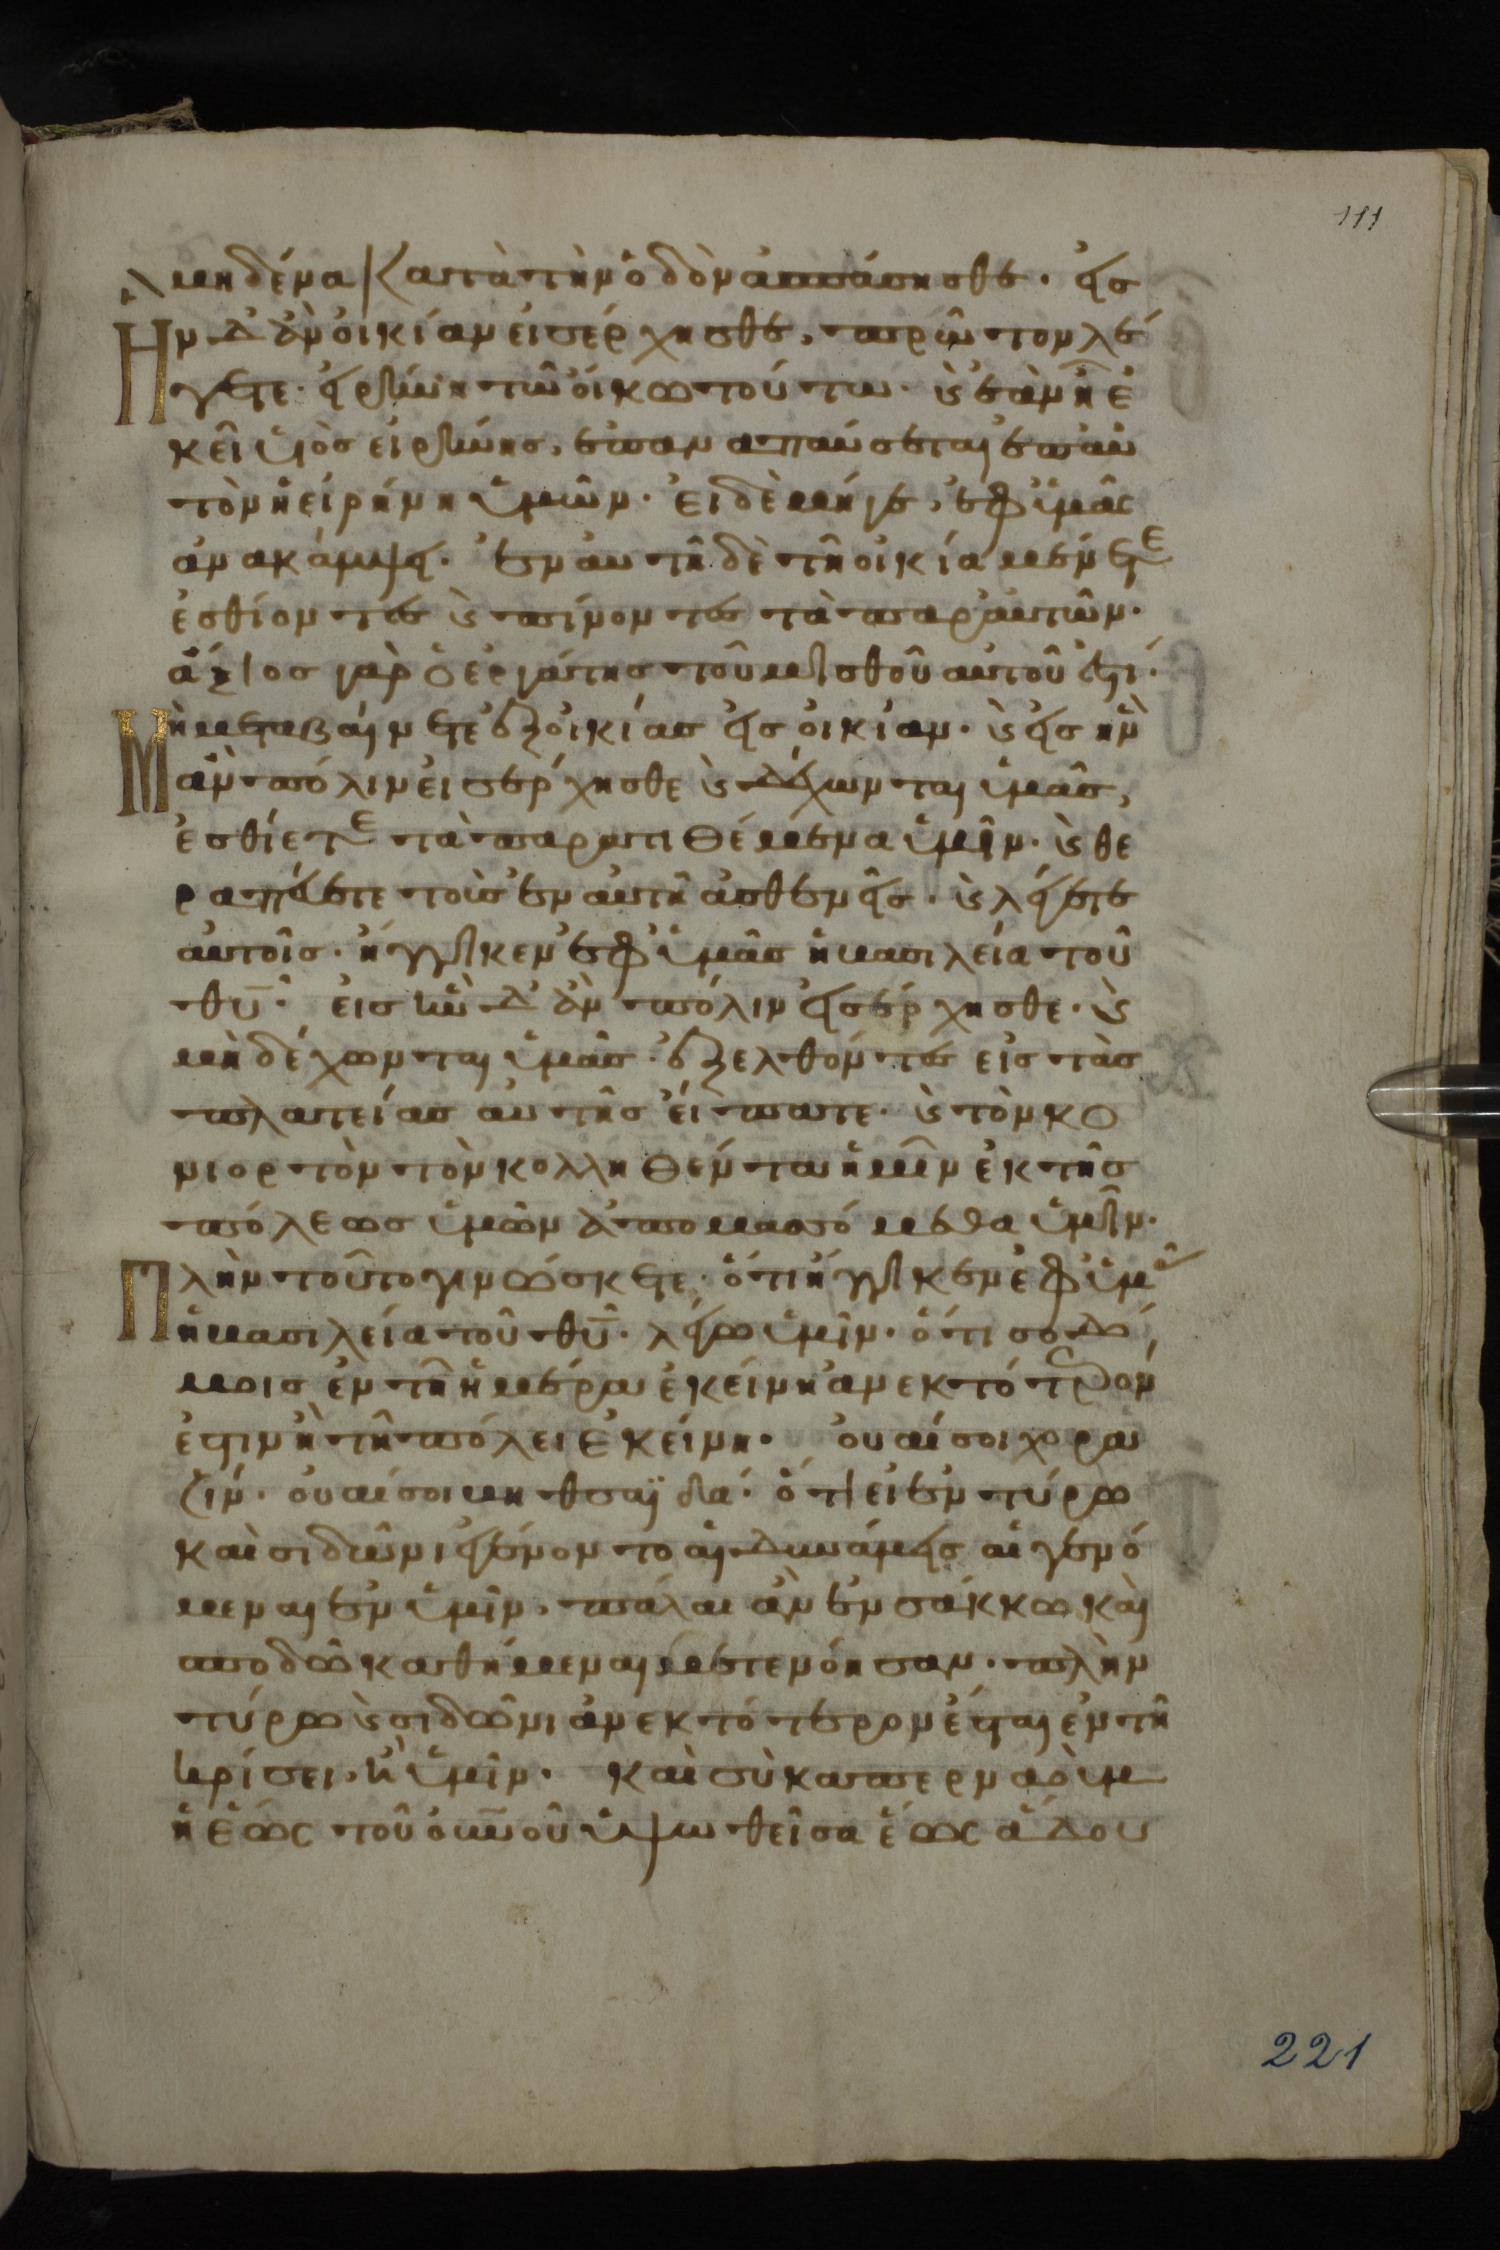 111
μηδένα κατὰ τὴν ὁδὸν ἀσπάσησθε· εἰς
Ην δ' ἂν οἰκίαν εἰσέρχησθε, πρῶτον λέ
γετε· εἰρήνη τῶ οἴκω τούτω· καὶ ἐὰν ἦ ἐ
κεῖ υἱὸς εἰρήνης, ἐπαναπαύσεται ἐπ' αὐ
τὸν ἡ εἰρήνη ὑμῶν· εἰ δὲ μήγε, ἐφ' ὑμᾶς
ἀνακάμψει· ἐν αὐτῆ δὲ τῆ οἰκία μένετε
ἐσθίοντες καὶ πίνοντες τὰ παρ' αὐτῶν·
ἄξιος γὰρ ὁ ἐργάτης τοῦ μισθοῦ αὐτοῦ ἐστί·
Μὴ μεταβαίνετε ἐξ οἰκίας εἰς οἰκίαν· καὶ εἰς ἣν
ἂν πόλιν εἰσέρχησθε καὶ δέχωνται ὑμᾶς,
ἐσθίετε τὰ παρατιθέμενα ὑμῖν· καὶ θε
ραπεύετε τοὺς ἐν αὐτῆ ἀσθενεῖς· καὶ λέγετε
αὐτοῖς· ἤγγικεν ἐφ' ὑμᾶς ἡ βασιλεία τοῦ
θυ· εἰς ἣν δ' ἂν πόλιν εἰσέρχησθε· καὶ
μὴ δέχωνται ὑμᾶς· ἐξελθόντες εἰς τὰς
πλατείας αὐτῆς εἴπατε· καὶ τὸν κο
νιορτὸν τὸν κολληθέντα ἡμῖν ἐκ τῆς
πόλεως ὑμῶν ἀπομασσόμεθα ὑμῖν·
Πλὴν τοῦτο γινώσκετε· ὅτι ἤγγικεν ἐφ' ὑμᾶς
ἡ βασιλεία τοῦ θυ· λέγω ὑμῖν· ὅτι σοδό
μοις ἐν τῆ ἡμέρα ἐκείνη ἀνεκτότερον
ἔσται ἢ τῆ πόλει ἐκείνη· οὐαί σοι χορα
ζίν· οὐαί σοι βηθσαϊδά· ὅτι εἰ ἐν τύρω
καὶ σιδῶνι ἐγένοντο αἱ δυνάμεις αἱ γενό
μεναι ἐν ὑμῖν, πάλαι ἂν ἐν σάκκω καὶ
σποδῶ καθήμεναι μετενόησαν· πλὴν
τύρω καὶ σιδῶνι ἀνεκτότερον ἔσται ἐν τῆ
κρίσει, ἢ ὑμῖν· καὶ σὺ καπερναοὺμ
ἡ ἕως τοῦ οὐνοῦ ὑψωθεῖσα ἕως ἅδου
221